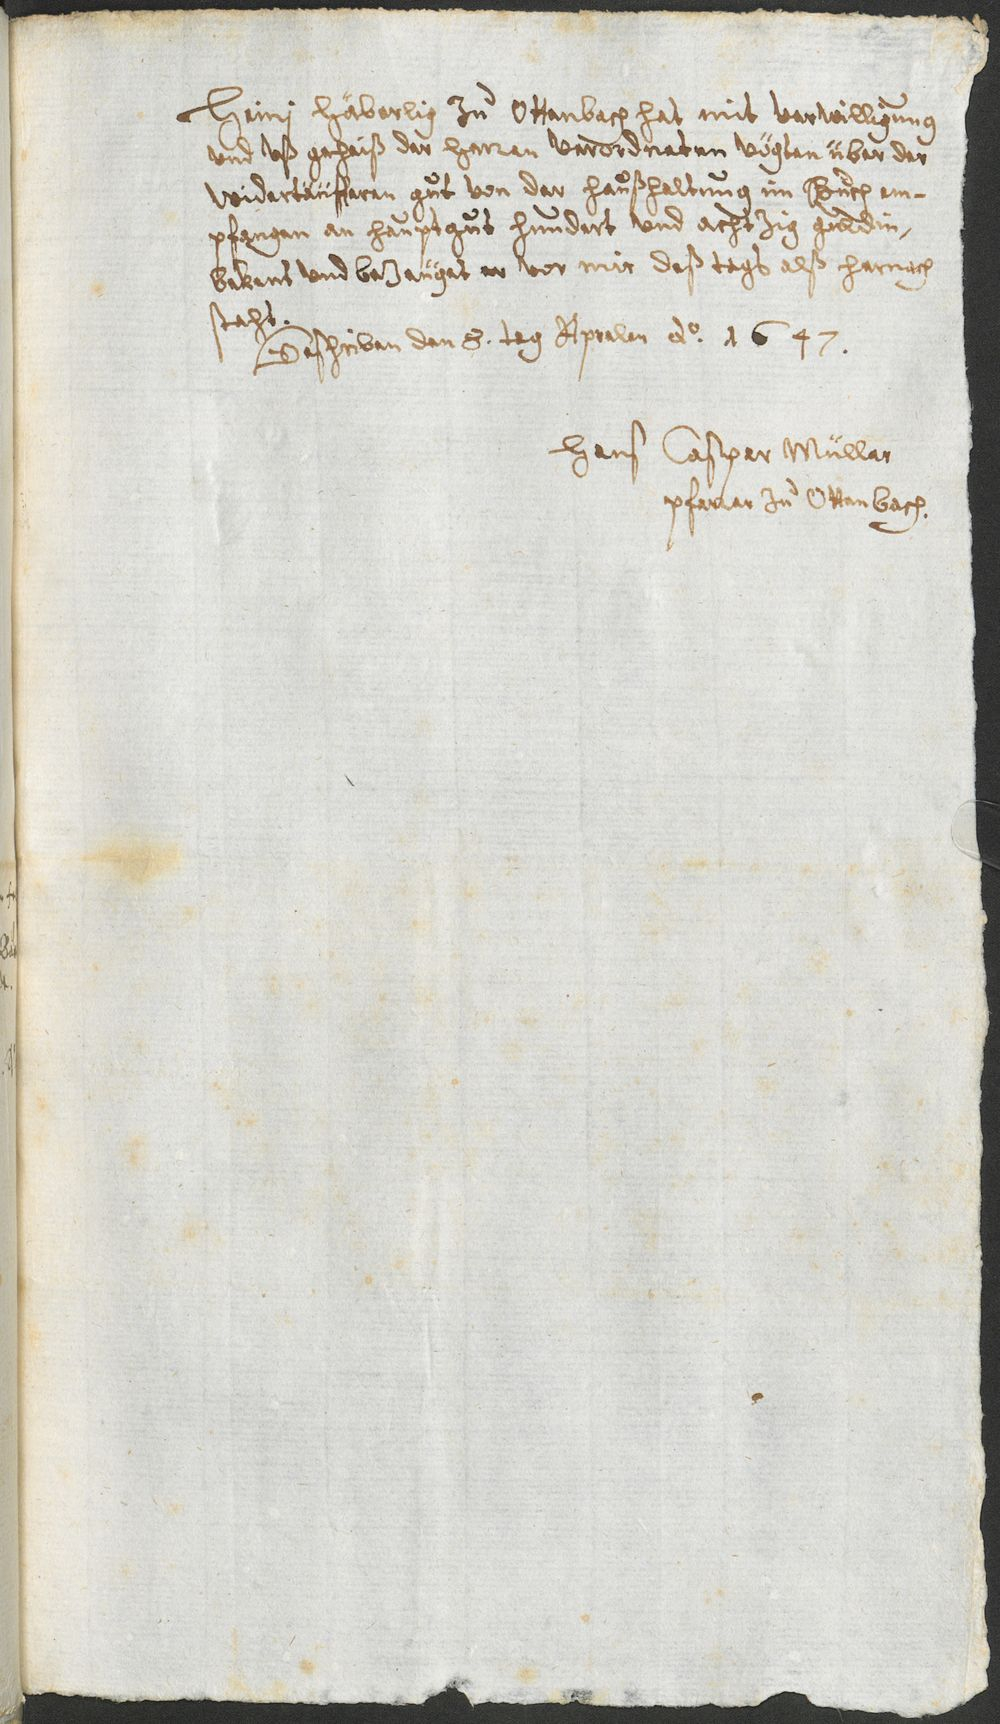 Heinj Häberlig Zů Ottenbach hat mit verwilligung
und uß geheiß der herren verordneten vögten über der
widertäüfferen gůt von der haußhaltung im Bůch em-
pfangen an hauptgůt hundert und achtzig guldin,
bekent und bezeüget er vor mir deß tags alß harnach
staht.
Geschriben den 8. tag Aprelen Ao. 1647.
Hans Casper Müller
pfarrer Zů Ottenbach.